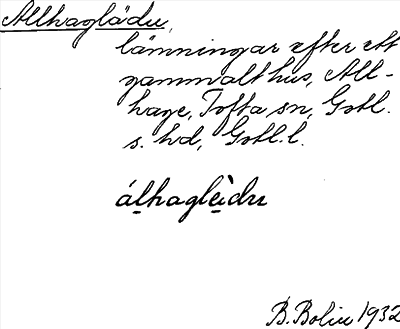 Allhaglädu,
lämningar efter ett
gammalt hus, All-
hage, Tofta sn, Gotl.
s. hd, Gotl. l.
álhaglèdu
B. Bolin 1932